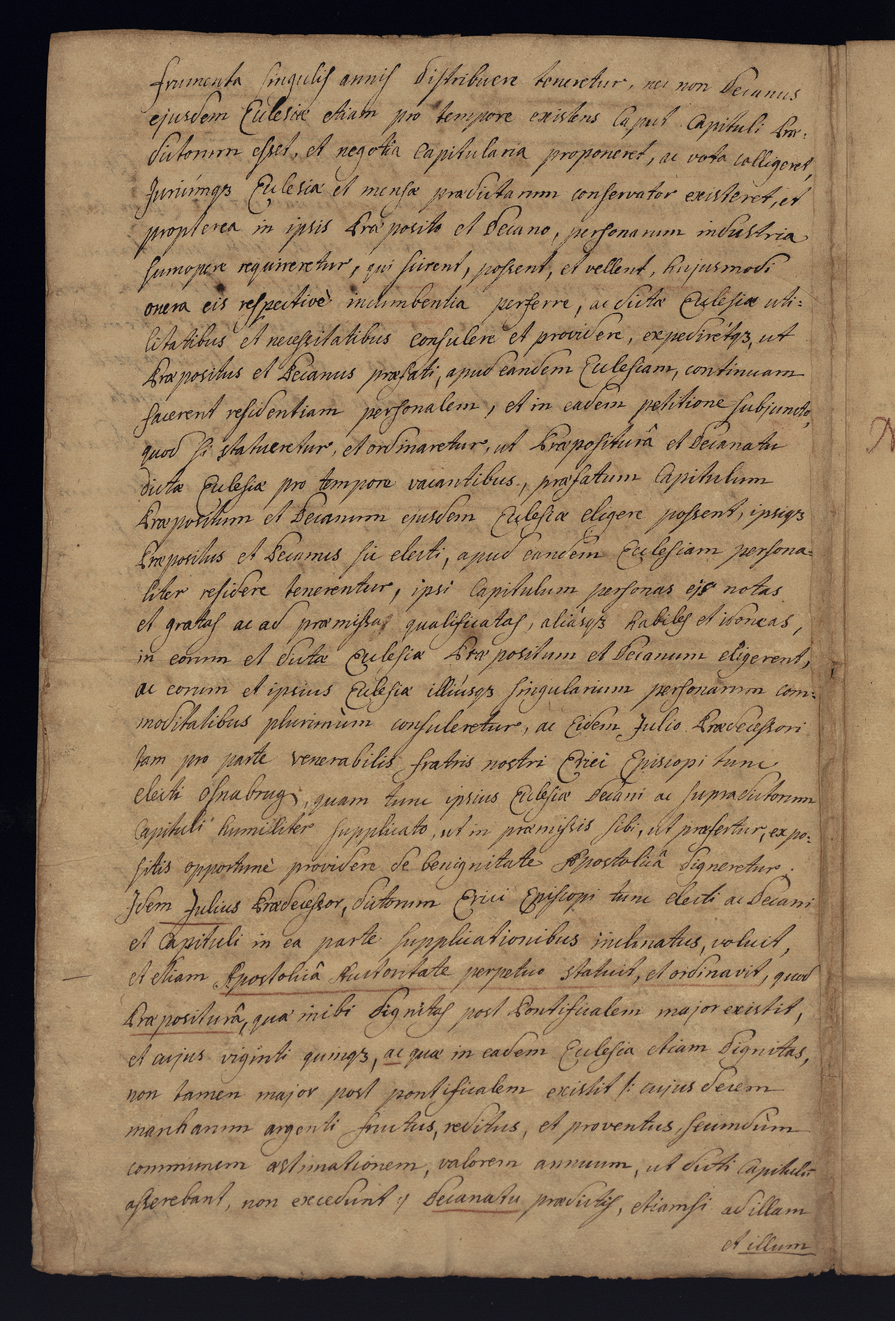 frumenta singulis annis distribuere teneretur, nec non Decanus
ejusdem Eclesiæ etiam pro tempore existens Caput Capituli Præ-
dictorum esset, et negotia Capitularia proponeret, ac vota colligeret,
Juriúmqȝ Eclesiæ et mensæ prædictarum conservator existeret, et
propterea in ipsis Præposito et Decano, personarum industria
sumopere requireretur, qui scirent, possent, et vellent, hujusmodi
onera eis respectivè incumbentia perferre, ac dictæ Eclesiæ uti-
litatibus et necessitatibus consulere et providere, expedirétqȝ, ut
Præpositus et Decanus præfati, apud eandem Eclesiam, continuam
facerent residentiam personalem, et in eadem petitione subjuncto,
quod si statueretur, et ordinaretur, ut Præpositurâ et Decanatu
dictæ Eclesiæ pro tempore vacantibus, præfatum Capitulum
Præpositum et Decanum ejusdem Eclesiæ eligere possent, ipsiqȝ
Præpositus et Decanus sic electi, apud eandem Eclesiam persona-
liter residere tenerentur, ipsi Capitulum personas eis notas
et gratas ac ad præmissa qualificatas, aliásqȝ habiles et idoneas,
in eorum et dictæ Eclesiæ Præpositum et Decanum eligerent,
ac eorum et ipsius Eclesiæ illiúsqȝ singularium personarum com-
moditatibus plurimùm consuleretur, ac Eidem Julio Prædecessori
tam pro parte venerabilis fratris nostri Erici Episcopi tunc
electi Osnabrug:, quam tunc ipsius Eclesiæ Decani ac supradictorum
Capituli humiliter supplicato, ut in præmissis sibi, ut præfertur, expo-
sitis opportunè providere de benignitate Apostolicâ dignaretur.
Idem Julius Prædecessor, dictorum Erici Episcopi tunc electi ac Decani
et Capituli in ea parte supplicationibus inclinatus, voluit,
et etiam Apostolicâ Autoritate perpetuo statuit, et ordinavit, quod
Præpositurâ, quæ inibi dignitas post Pontificalem major existit,
et cujus viginti quinqȝ, ac quæ in eadem Eclesia etiam Dignitas,
non tamen major post pontificalem existit /: cujus decem
marcharum argenti fructus, reditus, et proventus, secundùm
communem æstimationem, valorem annuum, ut dicti Capituli
asserebant, non excedunt :/ Decanatu prædictis, etiamsi ad illam
et illum